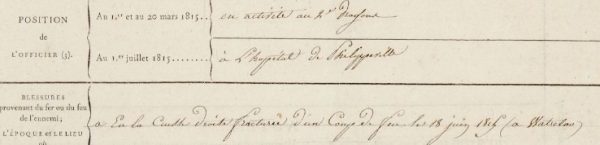 POSITION
DE
L'OFFICIER (3).
Au 1.er et au 20 mars 1815.... en activité au 2e Dragons
Au 1.er juillet 1815........ à L'hopital de Philippeville
BLESSURES
provenant du fer ou du feu
de l'ennemi;
L'ÉPOQUE et LE LIEU
où
a Eu la Cuisse droite fracturée d'un Coup de feu le 18 juin 1815 (a Waterloo)